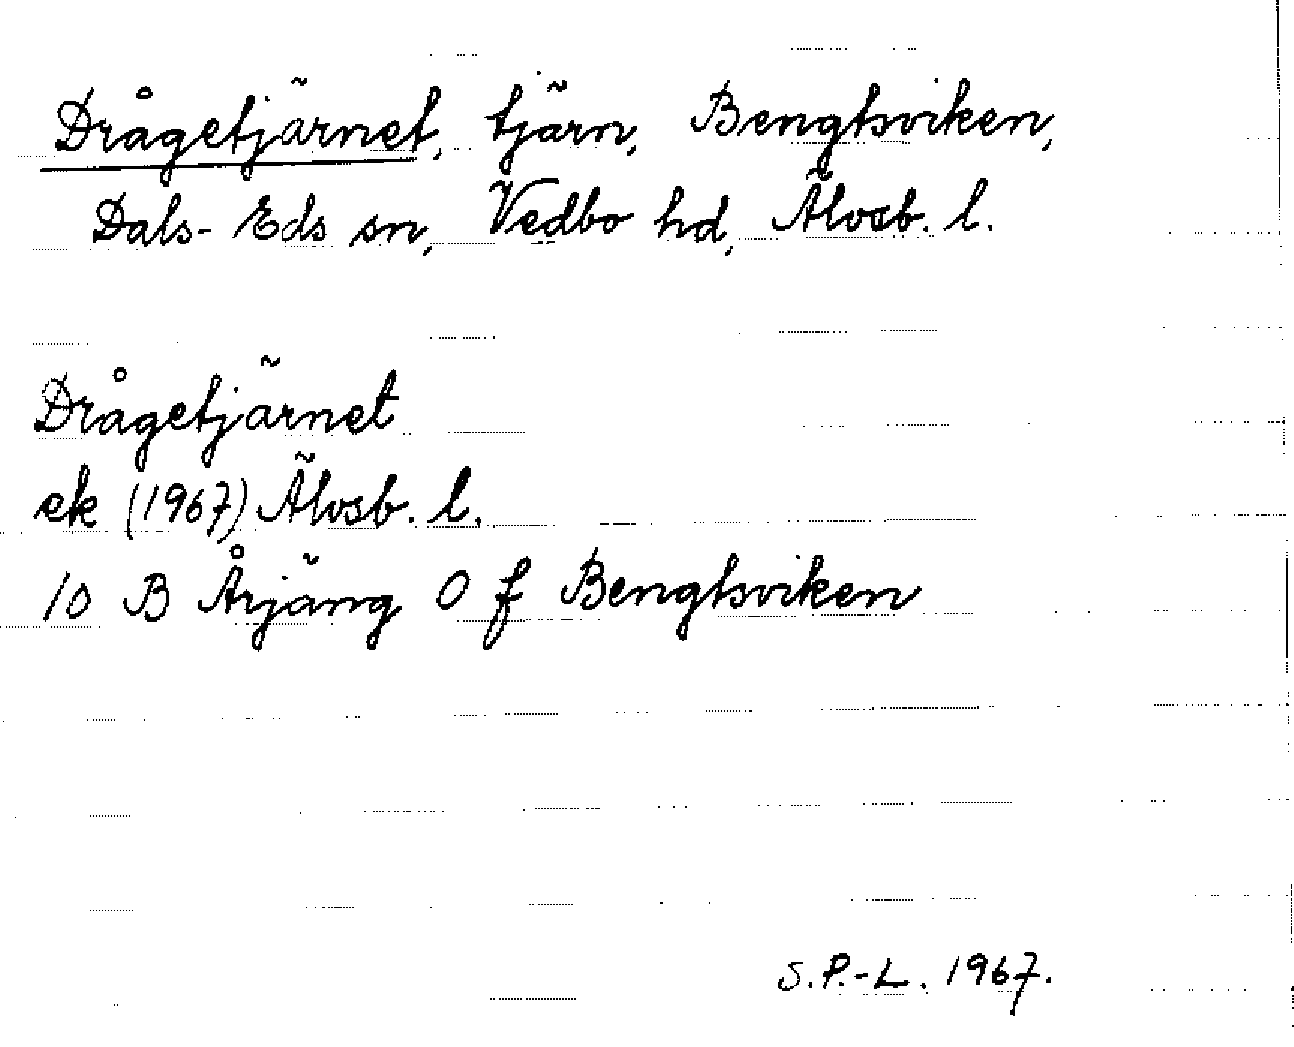 Drågetjärnet, tjärn, Bengtsviken,
Dals-Eds sn, Vedbo hd, Älvsb. l.
Drågetjärnet
ek (1967) Älvsb. l.
10 B Årjäng O f Bengtsviken
S.P.-L. 1967.